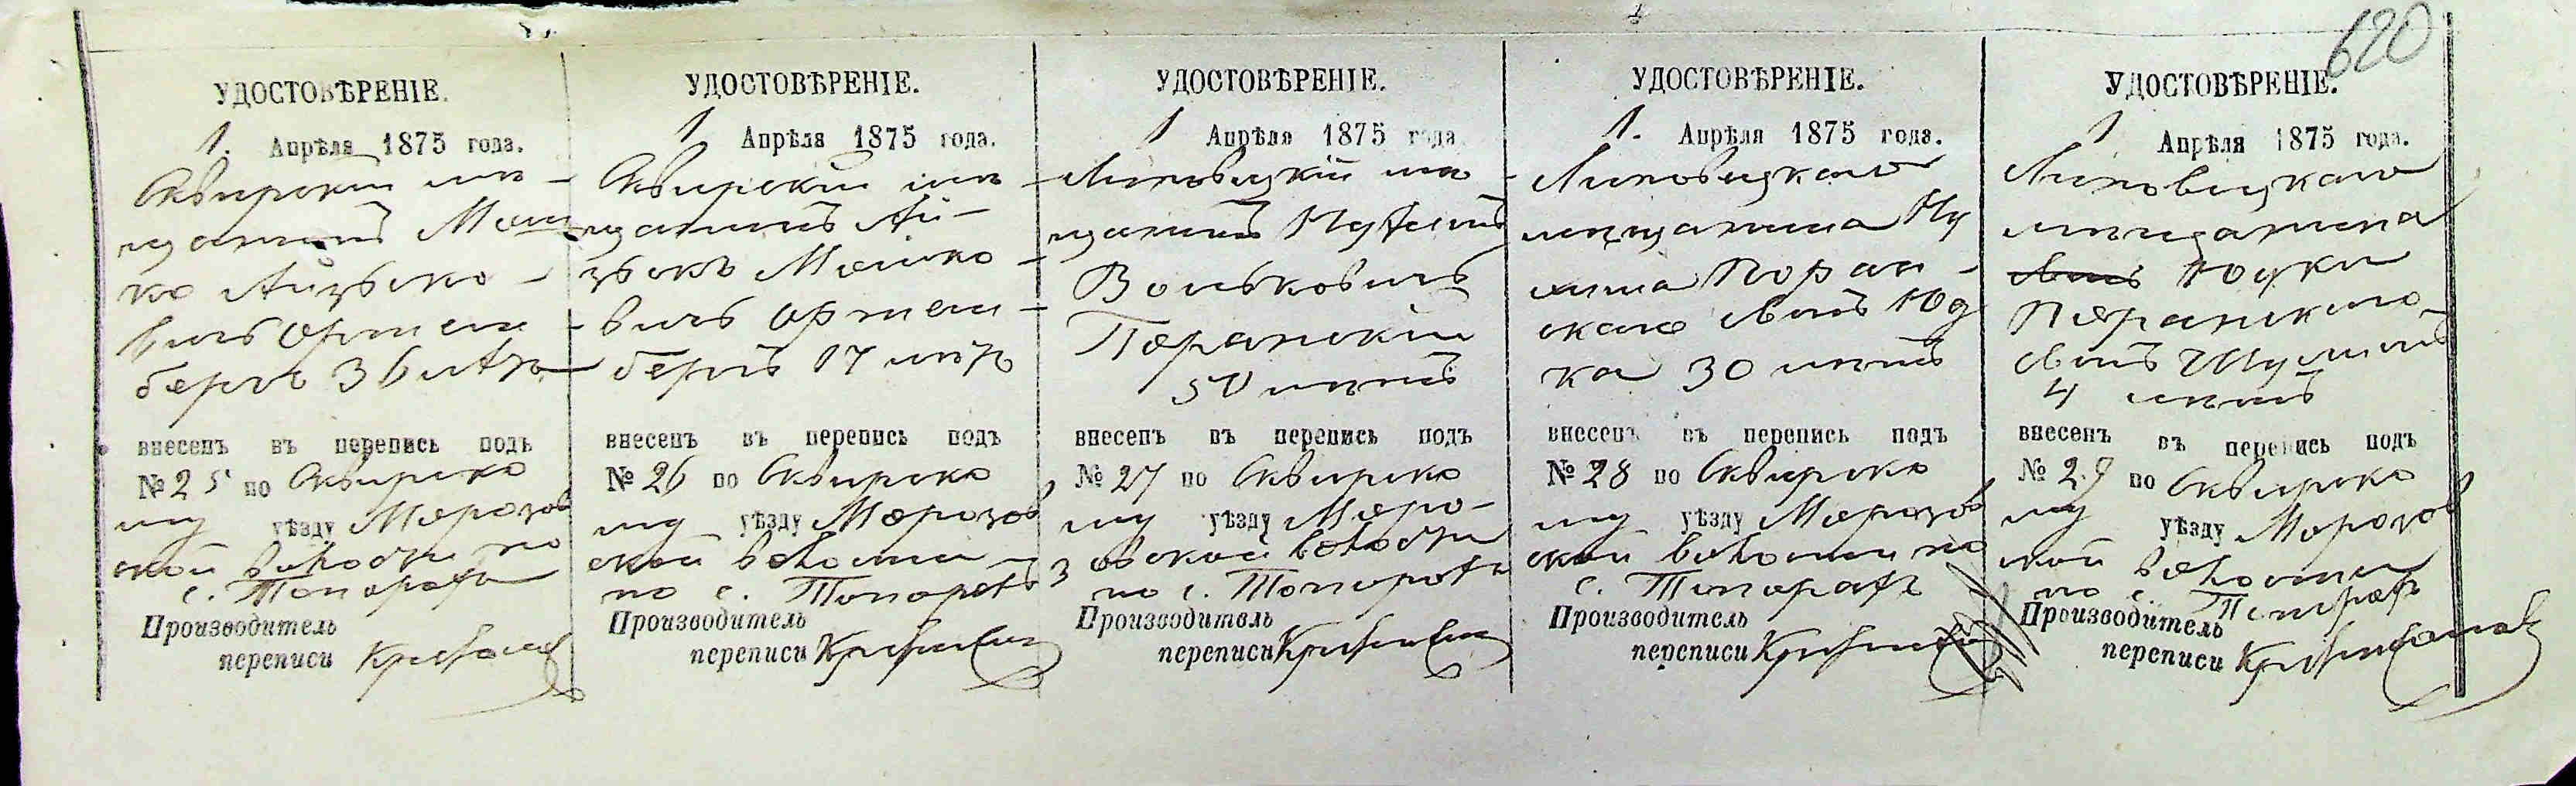 620
УДОСТОВѢРЕНІЕ.
1. Апрѣля 1875 года.
Сквирскій мѣ-
щанинъ Мош
ко Айзько-
вичъ Ортен
бергъ 36 лѣтъ
внесенъ въ перепись подъ
№ 25 по Сквирско
му уѣзду Морозов
ской волости по
с. Топорахъ
Производитель
переписи
УДОСТОВѢРЕНІЕ.
1 Апрѣля 1875 года.
Сквирскій мѣ
щанинъ Ай-
зькъ Мошко
вичъ Ортен-
бергъ 17 лѣтъ
внесенъ въ перепись подъ
№ 26 по Сквирско
му уѣзду Морозов
ской волости
по с. Топорахъ
Производитель
переписи
УДОСТОВѢРЕНІЕ.
1 Апрѣля 1875 года
Липовецкій мѣ-
щанинъ
Вольковичъ
Поранскій
50 лѣтъ
внесенъ въ перепись подъ
№ 27 по Сквирско
му уѣзду Моро-
зовской волости
по с. Топорахъ
Производитель
переписи
УДОСТОВѢРЕНІЕ.
1. Апрѣля 1875 года.
Липовецкаго
мѣщанина Ну
хима Поран-
скаго сынъ Юд
ка 30 лѣтъ
внесенъ въ перепись подъ
№ 28 по Сквирско
му уѣзду Морозов
ской волости по
с. Топорахъ
Производитель
переписи
УДОСТОВѢРЕНІЕ.
1 Апрѣля 1875 года.
Липовецкаго
мѣщанина
сынъ Юдки
Поранскаго
сынъ Шулимъ
4 лѣтъ
внесенъ въ перепись подъ
№ 29 по Сквирско
му уѣзду Морозов
ской волости
по с. Топорахъ
Производитель
переписи